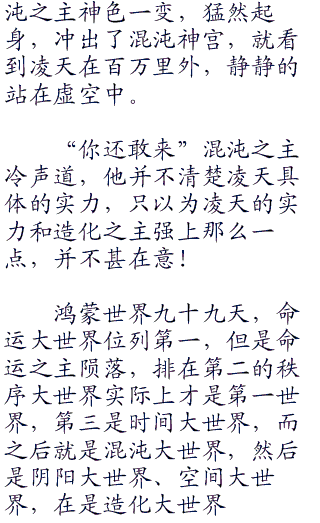 沌之主神色一变，猛然起
身，冲出了混沌神宫，就看
到凌天在百万里外，静静的
站在虚空中。
“你还敢来”混沌之主
冷声道，他并不清楚凌天具
体的实力，只以为凌天的实
力和造化之主强上那么一
点，并不甚在意！
鸿蒙世界九十九天，命
运大世界位列第一，但是命
运之主陨落，排在第二的秩
序大世界实际上才是第一世
界，第三是时间大世界，而
之后就是混沌大世界，然后
是阴阳大世界、空间大世
界，在是造化大世界